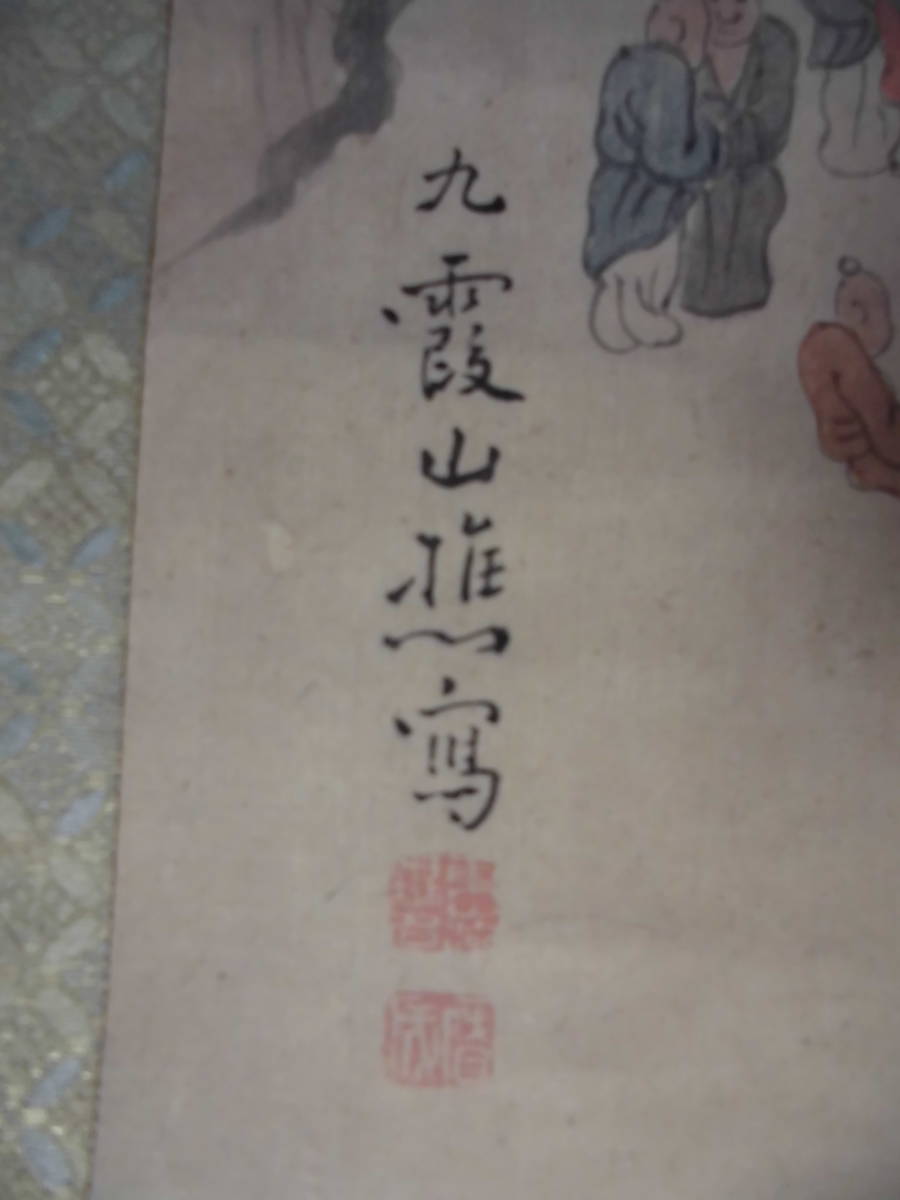 九霞山樵寫